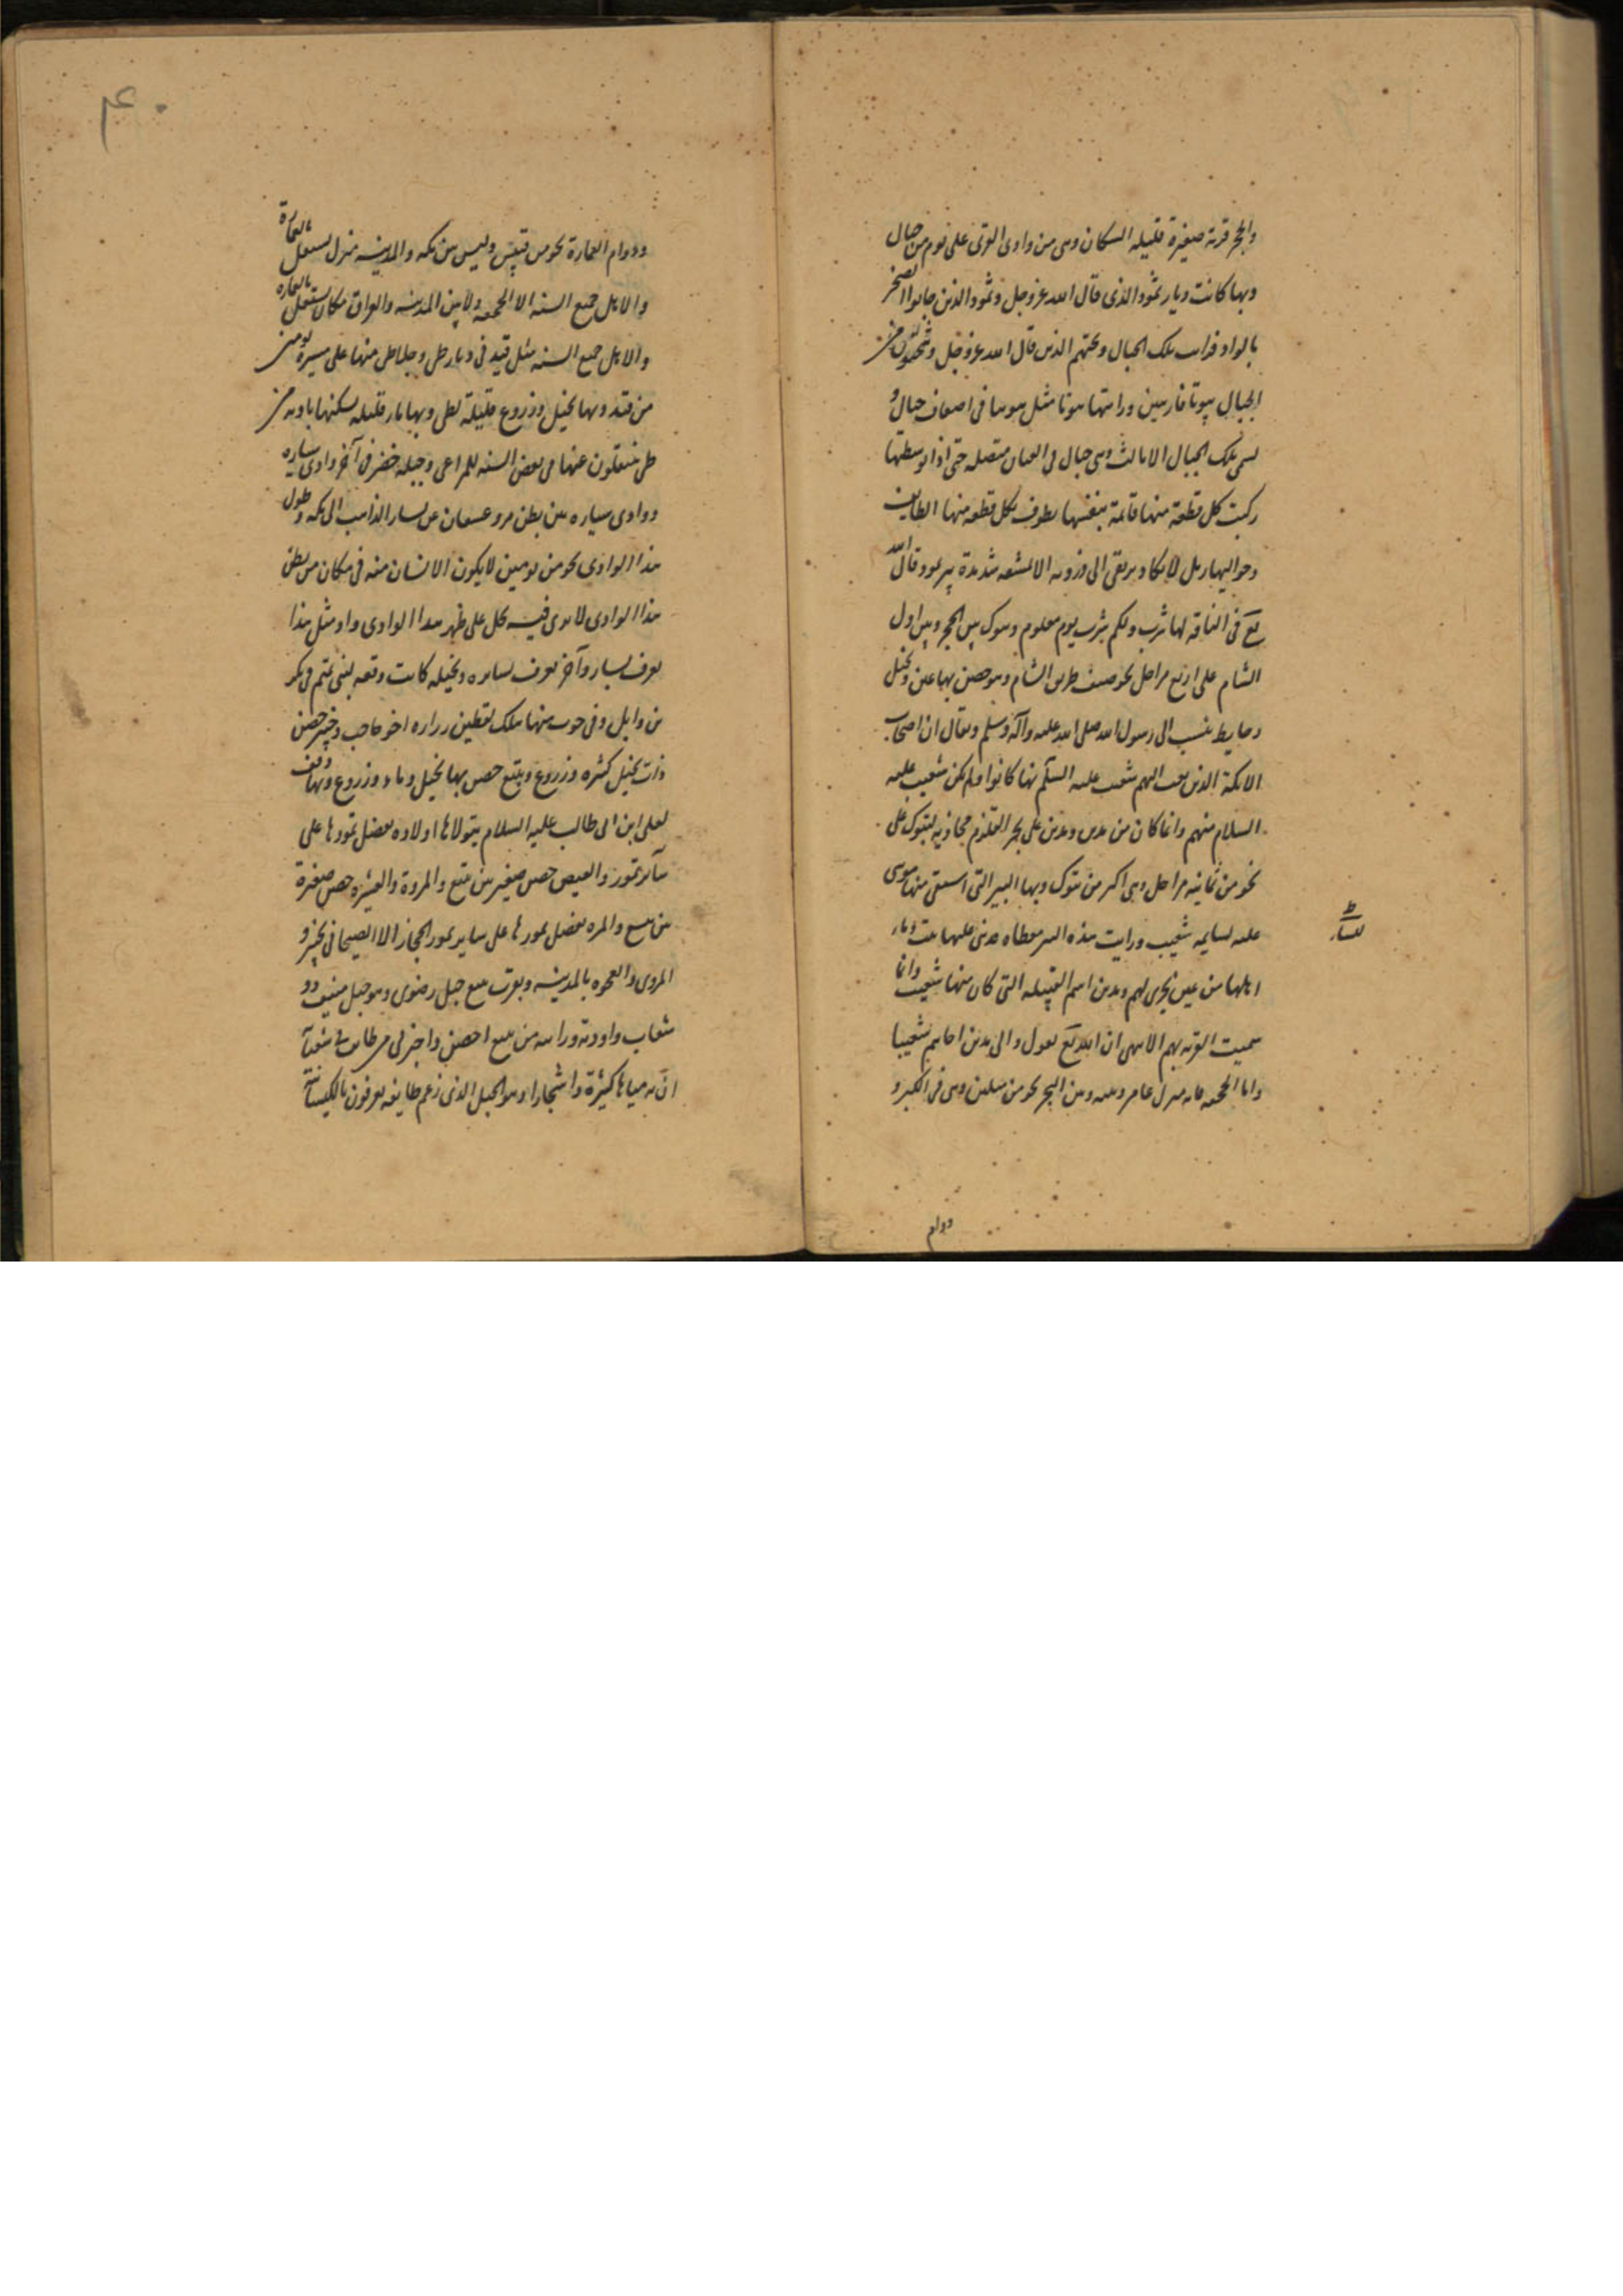 والحجر قرية صغيرة قليله السكان وهى من وادى القرى على يوم من جبال
وبها كانت ديار ثمود الذى قال الله عز وجل وثمود الذين جابوا الصخر
بالواد فرايت تلك الجبال ونحتهم الذين قال الله عز وجل وتنحتون من
الجبال بيوتا فارهين ورايتها بيوتا مثل بيوتنا فى اضعاف جبال و
تسمى تلك الجبال الاثالث وهى جبال فى العيان متصله حتى اذا توسطتها
ركبت كل قطعة منها قائمة بنفسها يطوف بكل قطعه منها الطايف
وحواليها رمل لا يكاد يرتقى الى ذروته الا بمشقه شديدة بير ثمود قال الله
تع فى الناقه لها شرب ولكم شرب يوم معلوم وتبوك بين الحجر وبين اول
الشام على اربع مراحل نحو نصف طريق الشام وهو حصن بها عين ونخيل
وحايط ينسب الى رسول الله صلى الله عليه وآله وسلم ويقال ان اصحاب
الايكة الذين بعث اليهم شعيب عليه السلم بها كانوا ولم يكن شعيب عليه
السلام منهم وانما كان من مدين ومدين على بحر القلزم محاذيه لتبوك على
نحو من ثمانيه مراحل وهى اكبر من تبوك وبها البير التى استقى منها موسى
عليه لسايمه شعيب ورايت هذه البير مغطاه قد بنى عليها بيت وماء
اهلها من عين يجرى لهم ومدين اسم القبيله التى كان منها شعيب وانما
سميت القريه بهم الا ترى ان الله تع يقول والى مدين اخاهم شعيبا
واما الجحفه فانه منزل عامر وبينه وبين البحر نحو من ميلين وهى فى الكبر و
دوام
۴۰
ودوام العمارة نحو من فيد وليس بين مكه والمدينه منزل يستقل بالعمارة
والاهل جميع السنه الا الجحفه ولا بين المدينه والعراق مكان يستقل بالعماره
والاهل جميع السنه مثل فيد فى ديار طى وجبلا طى منها على مسيرة يومين
من فيد وبها نخيل وزروع قليلة لطى وبها ماء قليله يسكنها باديه من
طى ينتقلون عنها فى بعض السنه للمراعى وجبله حصن فى آخر وادى ستاره
ووادى ستاره بين بطن مر وعسفان عن يسار الذاهب الى مكه وطول
هذا الوادى نحو من يومين لا يكون الانسان منه فى مكان من بطن
هذا الوادى لا يرى فيه نخلا على ظهر هذا الوادى واد مثل هذا
يعرف بسار وآخر يعرف بسايره وبجبله كانت وقعه لبنى تميم فى بكر
بن وايل وفى حرب منها هلك لقيط بن زراره اخو حاجب وخيبر حصن
ذات نخيل كثيره وزروع وينبع حصن بها نخيل وماء وزروع وبها وقف
لعلى ابن ابى طالب عليه السلام يتولاها اولاده يفضل تمورها على
سآير تمور والعيص حصن صغير بين ينبع والمروة والعشيره حصن صغيرة
بين ينبع والمروه يفضل تمورها على ساير تمور الحجاز الا الصيحانى بخيبر و
البردى والعجوه بالمدينه وبقرب ينبع جبل رضوى وهو جبل منيف ذو
شعاب واوديه ورايته من ينبع اخضر واخبرنى من طاف فى شعابه
ان به مياها كثيرة واشجارا وهو الجبل الذى زعم طايفه يعرفون بالكيسانية